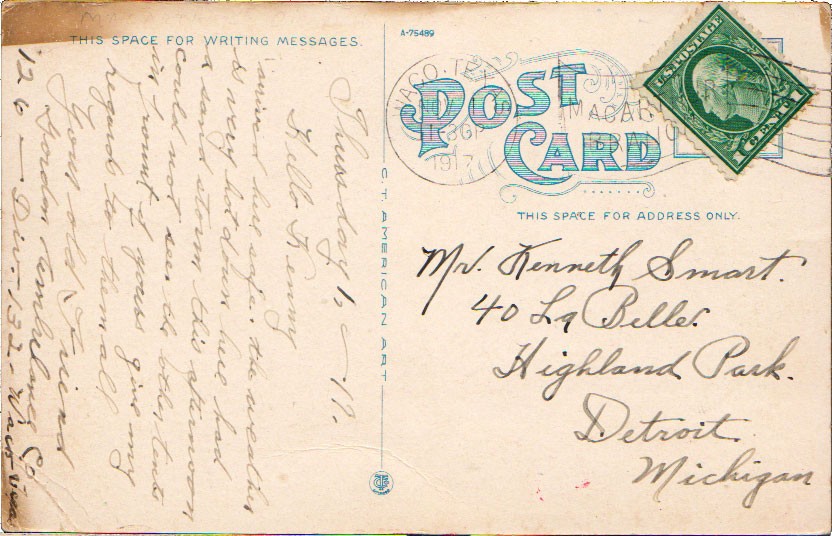 THIS SPACE FOR WRITING MESSAGES.
Thursday 1, — 17.
Kenny
arrived here safe. the weather
is very hot down here had
a sand storm this afternoon
could not see the other tents
in front of yours give my
regards to them all
Your old Friend
Gordon Ambulance Co
126 — Div. 132 - Waco Texas
C.T. AMERICAN ART
A-75489
POST CARD
WACO, TEX.
1917
U.S. POSTAGE
1 CENT 1
THIS SPACE FOR ADDRESS ONLY.
Mr. Kenneth Smart.
40 La Belle.
Highland Park.
Detroit.
Michigan